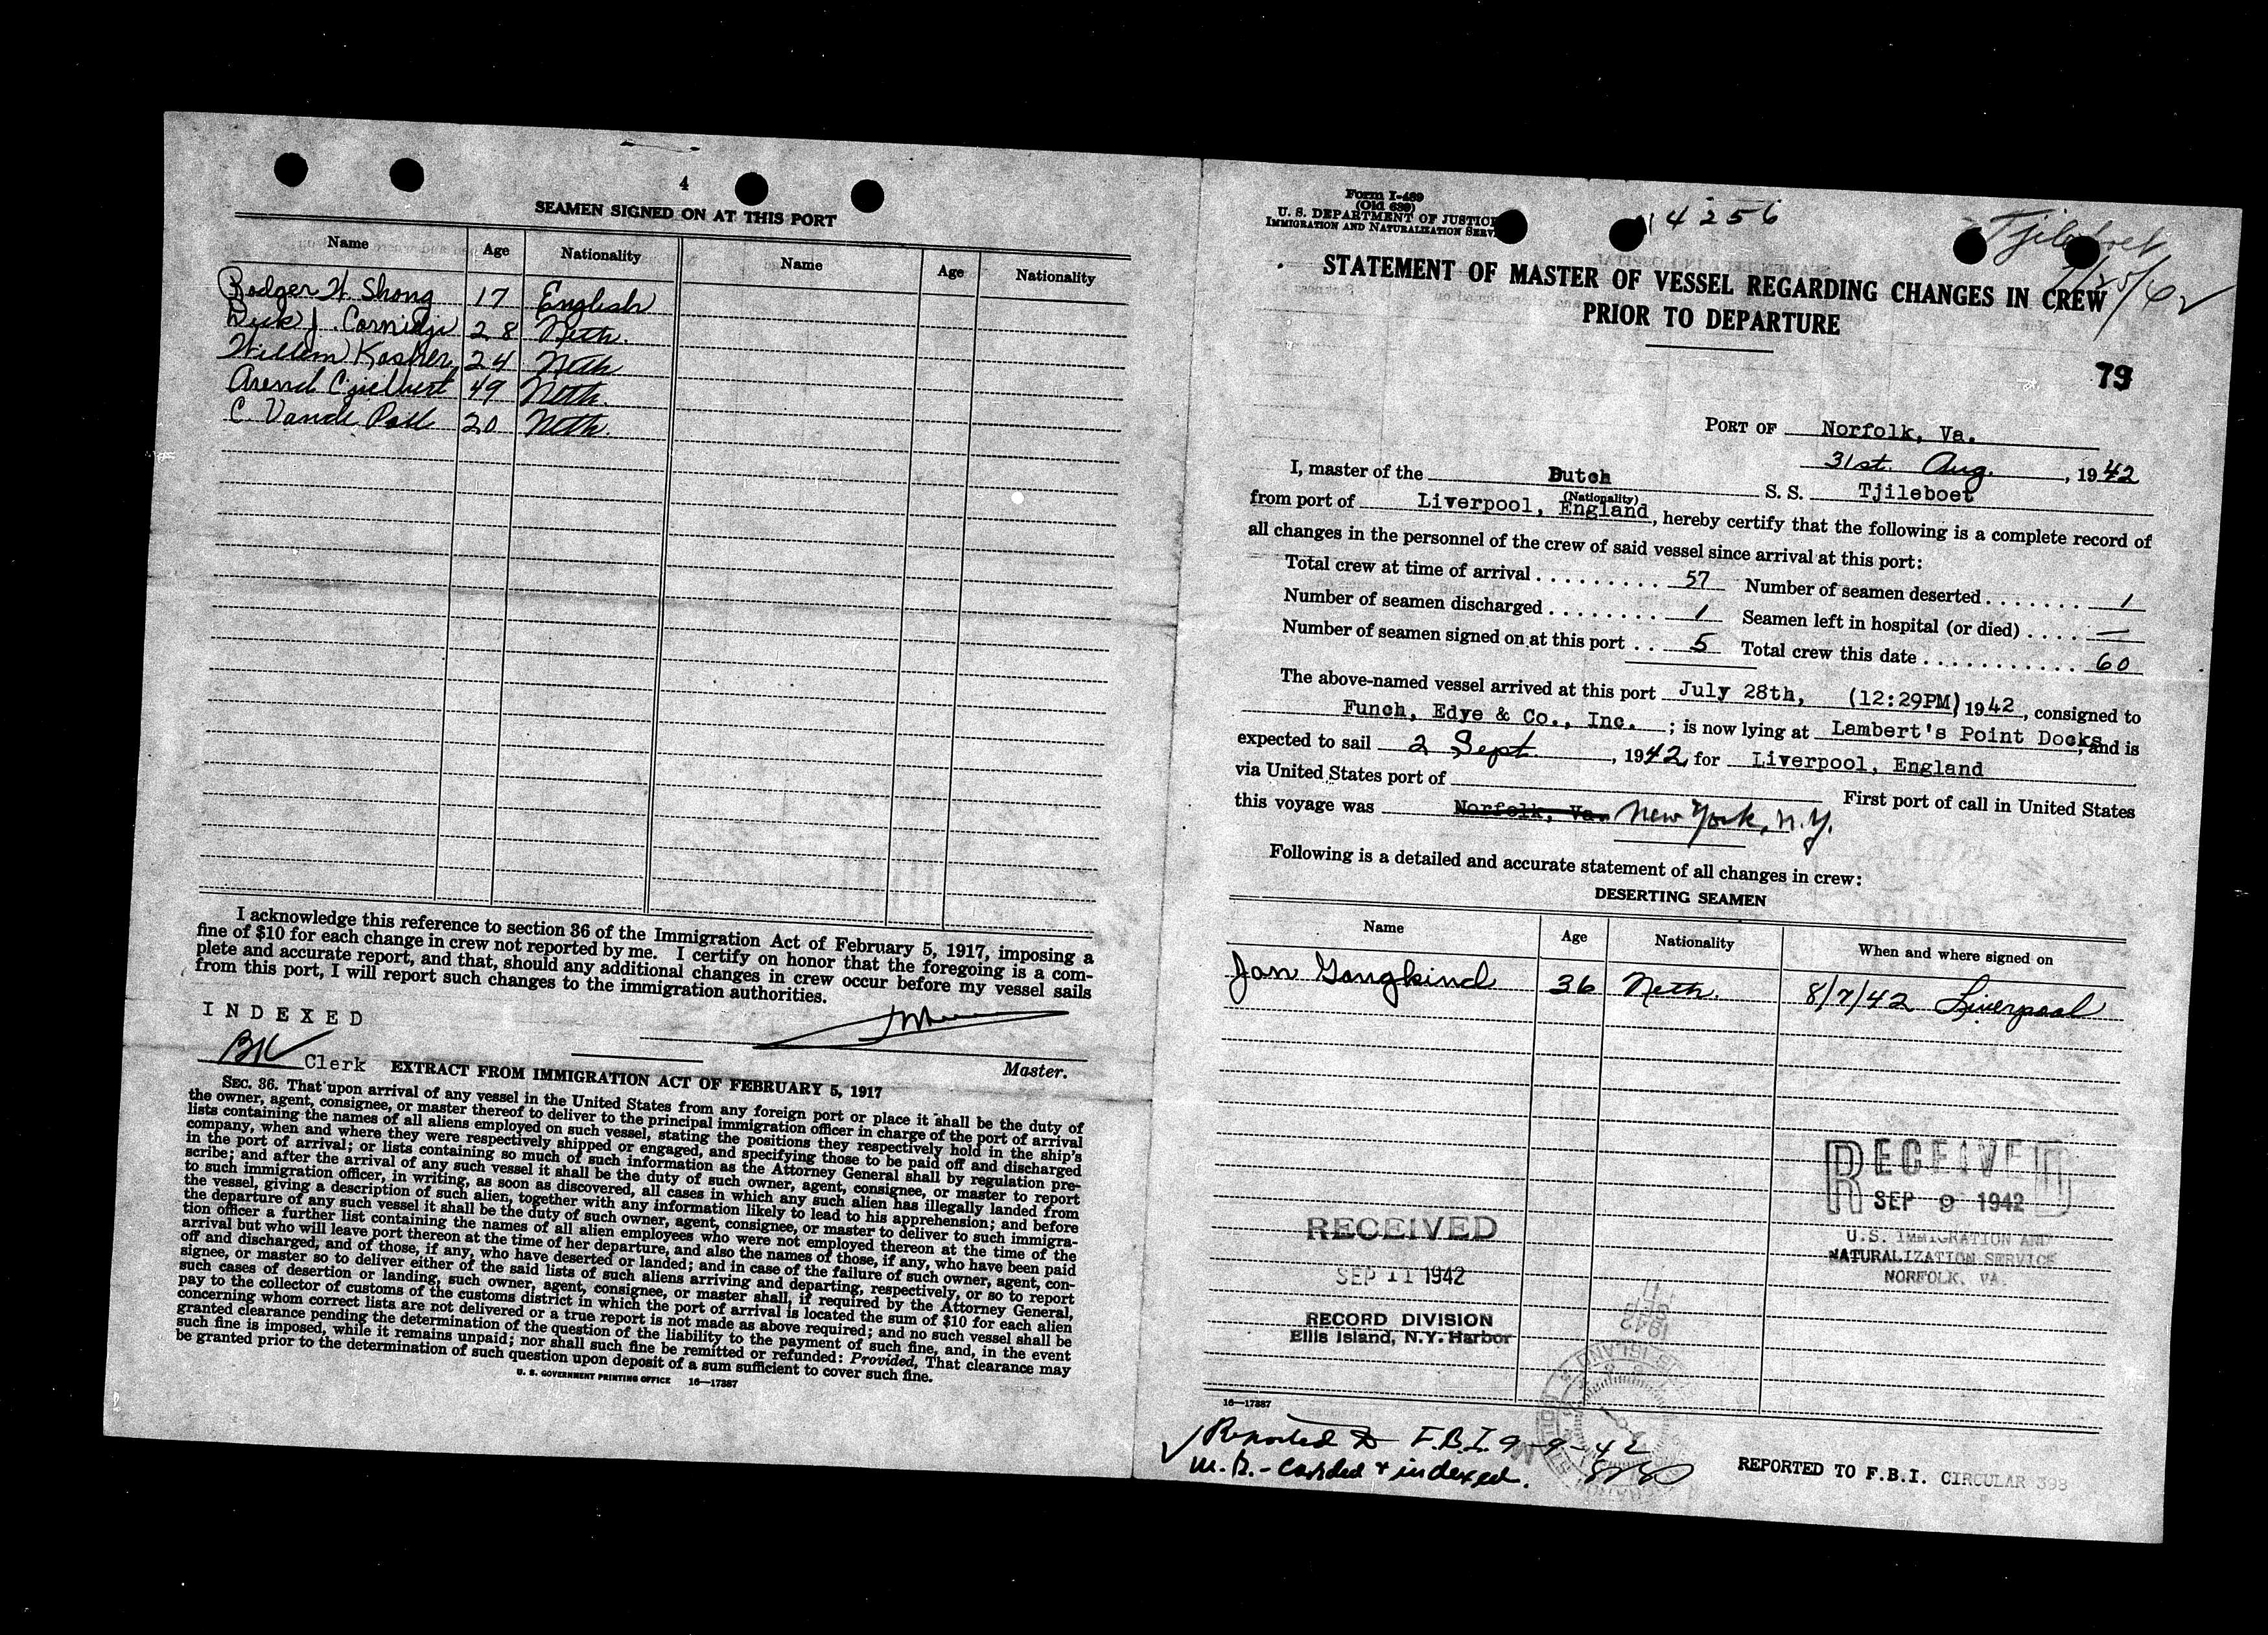 4
SEAMEN SIGNED ON AT THIS PORT
Name Age Nationality Name Age Nationality
Rodger H. Shong 17 English
Dirk J. 28 Neth.
Willem 24 Neth
Arend 49 Neth.
C. Vande Poll 20 Neth.
I acknowledge this reference to section 36 of the Immigration Act of February 5, 1917, imposing a
fine of $10 for each change in crew not reported by me. I certify on honor that the foregoing is a com-
plete and accurate report, and that, should any additional changes in crew occur before my vessel sails
from this port, I will report such changes to the immigration authorities.
INDEXED
BK Clerk
Master.
EXTRACT FROM IMMIGRATION ACT OF FEBRUARY 5, 1917
SEC. 36. That upon arrival of any vessel in the United States from any foreign port or place it shall be the duty of
the owner, agent, consignee, or master thereof to deliver to the principal immigration officer in charge of the port of arrival
lists containing the names of all aliens employed on such vessel, stating the positions they respectively hold in the ship's
company, when and where they were respectively shipped or engaged, and specifying those to be paid off and discharged
in the port of arrival; or lists containing so much of such information as the Attorney General shall by regulation pre-
scribe; and after the arrival of any such vessel it shall be the duty of such owner, agent, consignee, or master to report
to such immigration officer, in writing, as soon as discovered, all cases in which any such alien has illegally landed from
the vessel, giving a description of such alien, together with any information likely to lead to his apprehension; and before
the departure of any such vessel it shall be the duty of such owner, agent, consignee, or master to deliver to such immigra-
tion officer a further list containing the names of all alien employees who were not employed thereon at the time of the
arrival but who will leave port thereon at the time of her departure, and also the names of those, if any, who have been paid
off and discharged, and of those, if any, who have deserted or landed; and in case of the failure of such owner, agent, con-
signee, or master so to deliver either of the said lists of such aliens arriving and departing, respectively, or so to report
such cases of desertion or landing, such owner, agent, consignee, or master shall, if required by the Attorney General,
pay to the collector of customs of the customs district in which the port of arrival is located the sum of $10 for each alien
concerning whom correct lists are not delivered or a true report is not made as above required; and no such vessel shall be
granted clearance pending the determination of the question of the liability to the payment of such fine, and, in the event
such fine is imposed, while it remains unpaid; nor shall such fine be remitted or refunded: Provided, That clearance may
be granted prior to the determination of such question upon deposit of a sum sufficient to cover such fine.
U. S. GOVERNMENT PRINTING OFFICE 16—17387
Form I-489
(Old 689)
U. S. DEPARTMENT OF JUSTICE
IMMIGRATION AND NATURALIZATION SERV
14256
Tjileboet
STATEMENT OF MASTER OF VESSEL REGARDING CHANGES IN CREW
PRIOR TO DEPARTURE
79
PORT OF Norfolk, Va.
31st. Aug. , 1942
I, master of the Dutch S. S. Tjileboet
(Nationality)
from port of Liverpool, England, hereby certify that the following is a complete record of
all changes in the personnel of the crew of said vessel since arrival at this port:
Total crew at time of arrival . . . . . . . . . 57 Number of seamen deserted . . . . . . . 1
Number of seamen discharged . . . . . . . 1 Seamen left in hospital (or died) . . . . —
Number of seamen signed on at this port . . 5 Total crew this date . . . . . . . . . . . . 60
The above-named vessel arrived at this port July 28th, (12:29PM) 1942, consigned to
Funch, Edye & Co., Inc. ; is now lying at Lambert's Point Docks, and is
expected to sail 2 Sept. , 1942, for Liverpool, England
via United States port of First port of call in United States
this voyage was Norfolk, Va. New York, N.Y.
Following is a detailed and accurate statement of all changes in crew:
DESERTING SEAMEN
Name Age Nationality When and where signed on
Jan Gongkind 36 Neth. 8/7/42 Liverpool
RECEIVED
SEP 9 1942
U.S. IMMIGRATION AND
NATURALIZATION SERVICE
NORFOLK, VA.
RECEIVED
SEP 11 1942
RECORD DIVISION
Ellis Island, N.Y. Harbor
16—17387
Reported to F.B.I. 9-9-42
carded + indexed.
REPORTED TO F.B.I. CIRCULAR 398